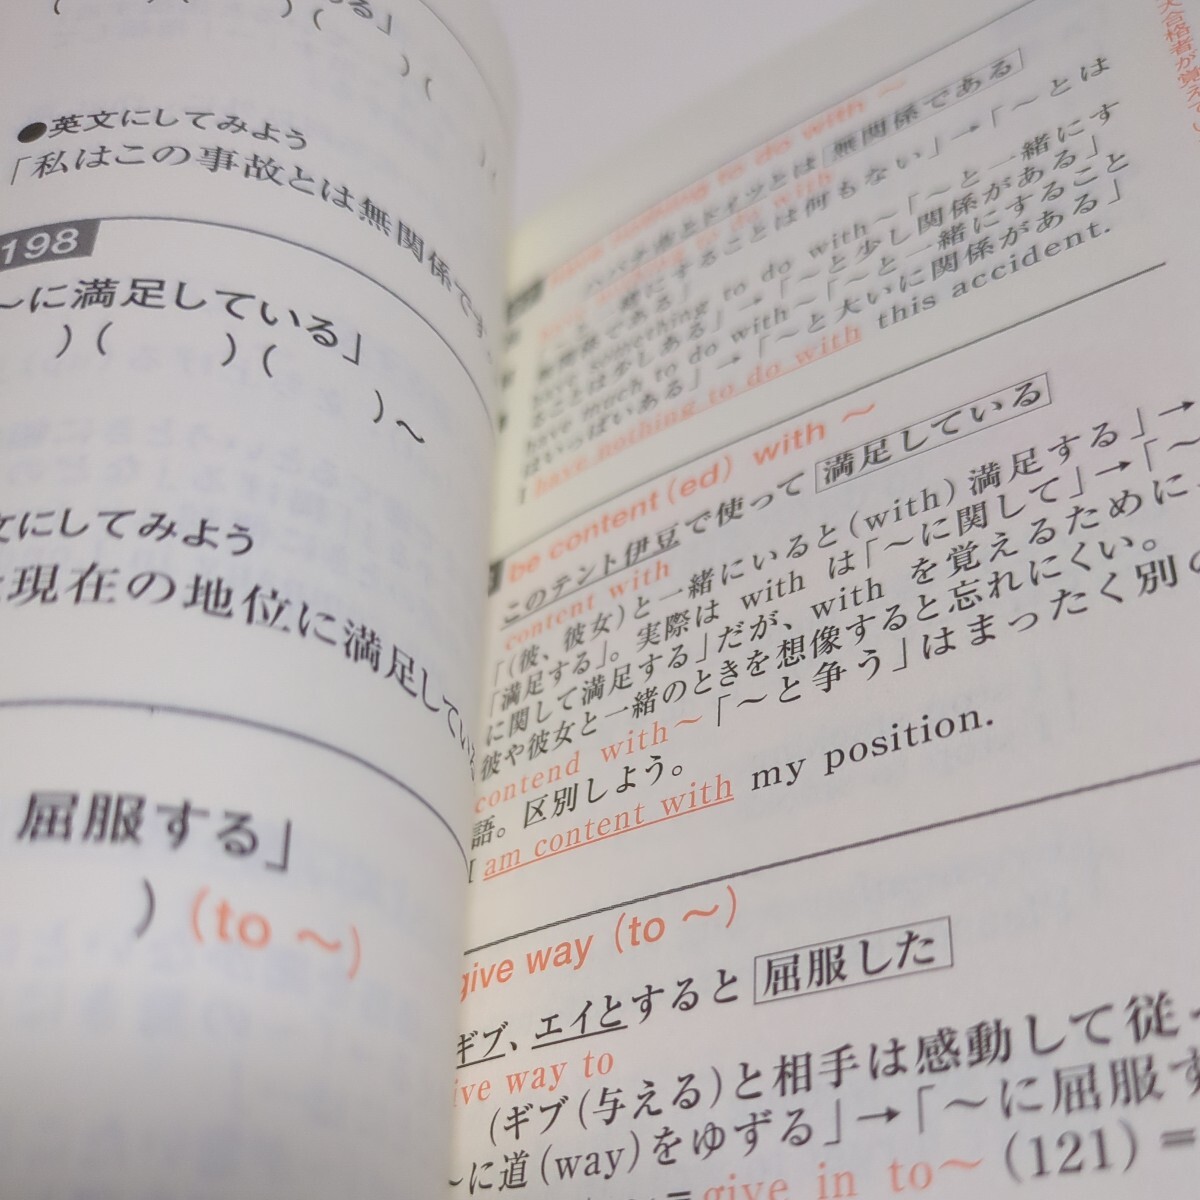 ●英文にしてみよう
「私はこの事故とは無関係です
198
〜に満足している」
)( )(
)〜
文にしてみよう
現在の地位に満足してい
屈服する」
)(to 〜)
have nothing to do with 〜
ハバナ産とドイツとは無関係である
nothing to do with
一緒にすることは何もない」→「〜とは
無関係である」
have something to do with〜「〜と一緒にす
ることは少しある」→「〜と少し関係がある」
have much to do with〜「〜と一緒にすること
はいっぱいある」→「〜と大いに関係がある」
I have nothing to do with this accident.
be content(ed) with 〜
このテント伊豆で使って満足している
content with
「(彼、彼女)と一緒にいると(with)満足する」→
「満足する」。実際は with は「〜に関して」→「〜
に関して満足する」だが、with を覚えるために、
彼や彼女と一緒のときを想像すると忘れにくい。
contend with〜「〜と争う」はまったく別の
語。区別しよう。
I am content with my position.
give way (to 〜)
ギブ、エイとすると屈服した
give way to
(ギブ(与える)と相手は感動して従っ
〜に道(way)をゆずる」→「〜に屈服す
=give in to〜(121)=